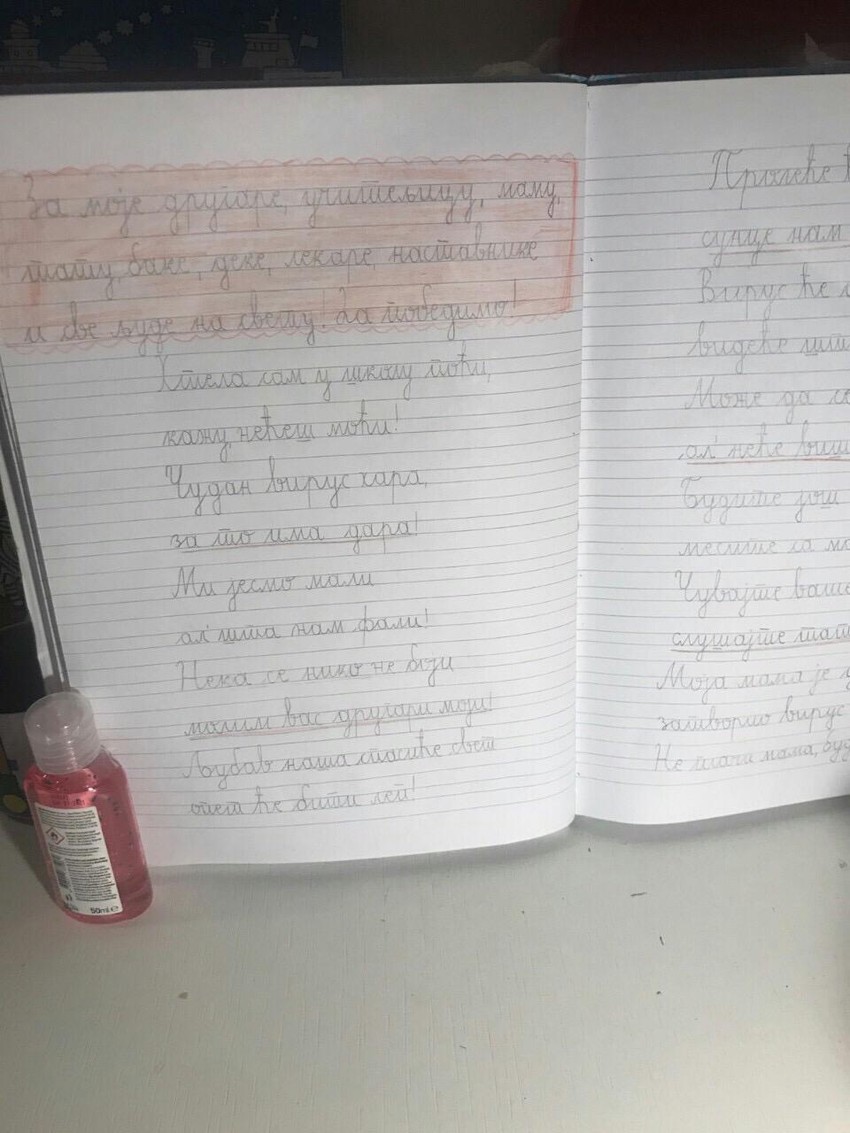 За моје другаре, учитељицу, маму,
тату, баке, деке, лекаре, наставнике
и све људе на свету! Да победимо!
Хтела сам у школу поћи,
кажу нећеш моћи!
Чудан вирус хара,
за то има дара!
Ми јесмо мали
ал' шта нам фали!
Нека се нико не боји
молим вас другари моји!
Љубав наша спасиће свет
опет ће бити леп!
Пролеће
сунце нам
Вирус ће
видеће
Може да
ал' неће
Будите још
месите са
Чувајте
слушајте
Моја мама је
затворио вирус
Не плачи мама,
50ml e